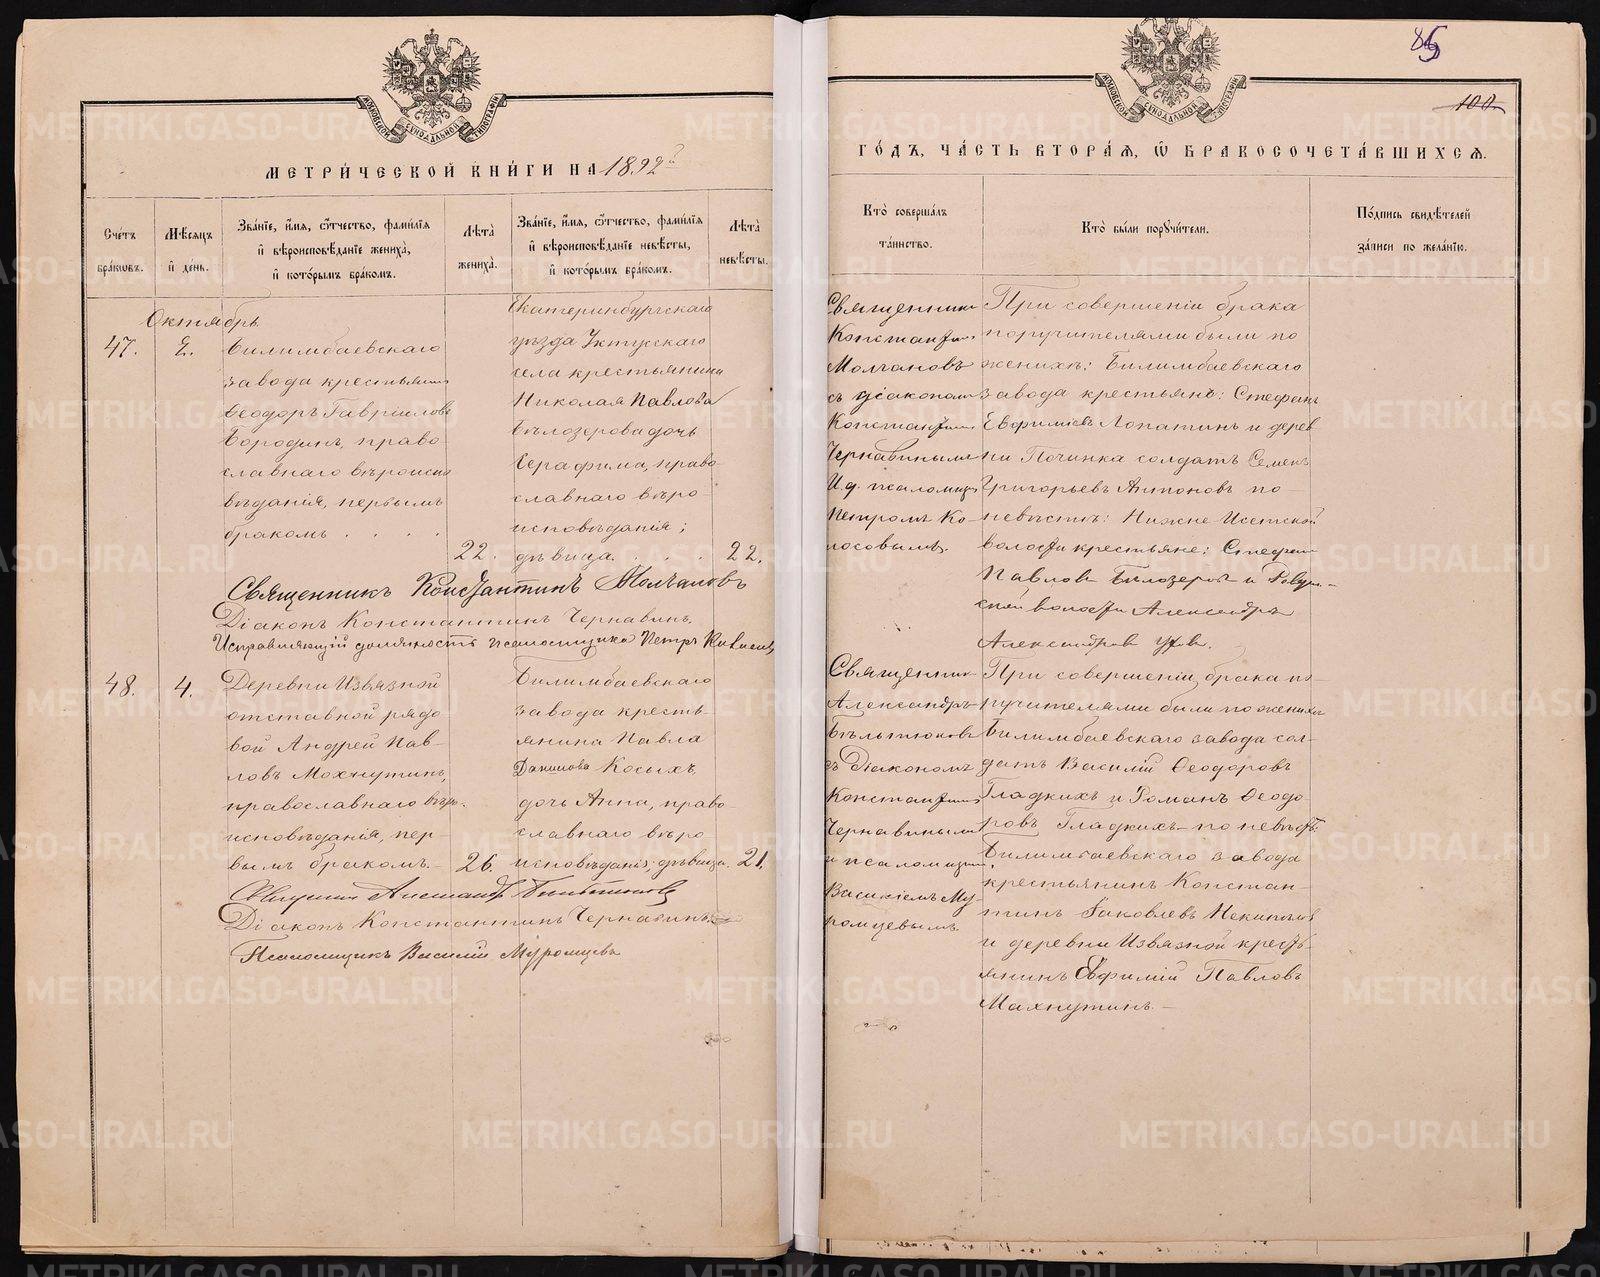 85
100
МОСКОВСКОЙ СѴНОДАЛЬНОЙ ТИПОГРАФІИ
МОСКОВСКОЙ СѴНОДАЛЬНОЙ ТИПОГРАФІИ
МЕТРИ́ЧЕСКОЙ КНИ́ГИ НА 1892
ГО́ДЪ, ЧА́СТЬ ВТОРА́Я, Ѿ БРАКОСОЧЕТА́ВШИХСЯ.
Сче́тъ
бра́кωвъ.
Мѣ́сяцъ
и҆ де́нь.
Зва́нїе, и҆́мя, ѻ҆́тчество, фами́лїя
и҆ вѣроисповѣ́данїе жениха̀,
и҆ кото́рымъ бра́комъ.
Лѣта̀
жениха̀.
Зва́нїе, и҆́мя, ѻ҆́тчество, фами́лїя
и҆ вѣроисповѣ́данїе невѣ́сты,
и҆ кото́рымъ бра́комъ.
Лѣта̀
невѣ́сты.
Кто̀ соверша́лъ
та́инство.
Кто̀ бы́ли пορꙋчи́тели.
По́дпись свидѣ́телей
за́писи по жела́нїю.
Октябрь
47.
2.
Билимбаевскаго
завода крестьянинъ
Ѳеодоръ Гавріиловъ
Бородинъ, право-
славнаго вѣроиспо-
вѣданія, первымъ
бракомъ . . . .
22.
Екатеринбургскаго
уѣзда Уктусскаго
села крестьянина
Николая Павлова
Бѣлозерова дочь
Серафима, право-
славнаго вѣро-
исповѣданія;
дѣвица . . . .
22.
Священникъ
Константинъ
Молчановъ
съ діакономъ
Константиномъ
Чернавинымъ
И. д. псаломщ.
Петромъ Ко-
лосовымъ.
При совершеніи брака
поручителями были по
женихѣ: Билимбаевскаго
завода крестьянъ: Стефанъ
Евфиміевъ Лопатинъ и дерев-
ни Починка солдатъ Семенъ
Григорьевъ Антоновъ по
невѣстѣ: Нижне Исетской
волости крестьяне: Стефанъ
Павловъ Бѣлозеровъ и
волости Александръ
Александровъ
Священникъ Константинъ Молчановъ
Діаконъ Константинъ Чернавинъ.
Исправляющій должность псаломщика Петръ
48.
4.
Деревни Извязной
отставной рядо-
вой Андрей Пав-
ловъ Махнутинъ,
православнаго вѣро-
исповѣданія, пер-
вымъ бракомъ. -
26.
Билимбаевскаго
завода кресть-
янина Павла
Данилова Косыхъ
дочь Анна, право-
славнаго вѣро-
исповѣданія; дѣвица.
21.
Священникъ
Александръ
съ Діакономъ
Константиномъ
Чернавинымъ
и псаломщикомъ
Василіемъ Му-
ромцевымъ.
При совершеніи брака по-
ручителями были по женихѣ
Билимбаевскаго завода сол-
датъ Василій Ѳеодоровъ
Гладкихъ и Романъ Ѳеодо-
ровъ Гладкихъ - по невѣстѣ:
Билимбаевскаго завода
крестьянинъ Констан-
тинъ Іаковлевъ
и деревни Извязной кресть-
янинъ Евфимій Павловъ
Махнутинъ. -
Священникъ Александръ
Діаконъ Константинъ Чернавинъ.
Псаломщикъ Василій Муромцевъ
METRIKI.GASO-URAL.RU